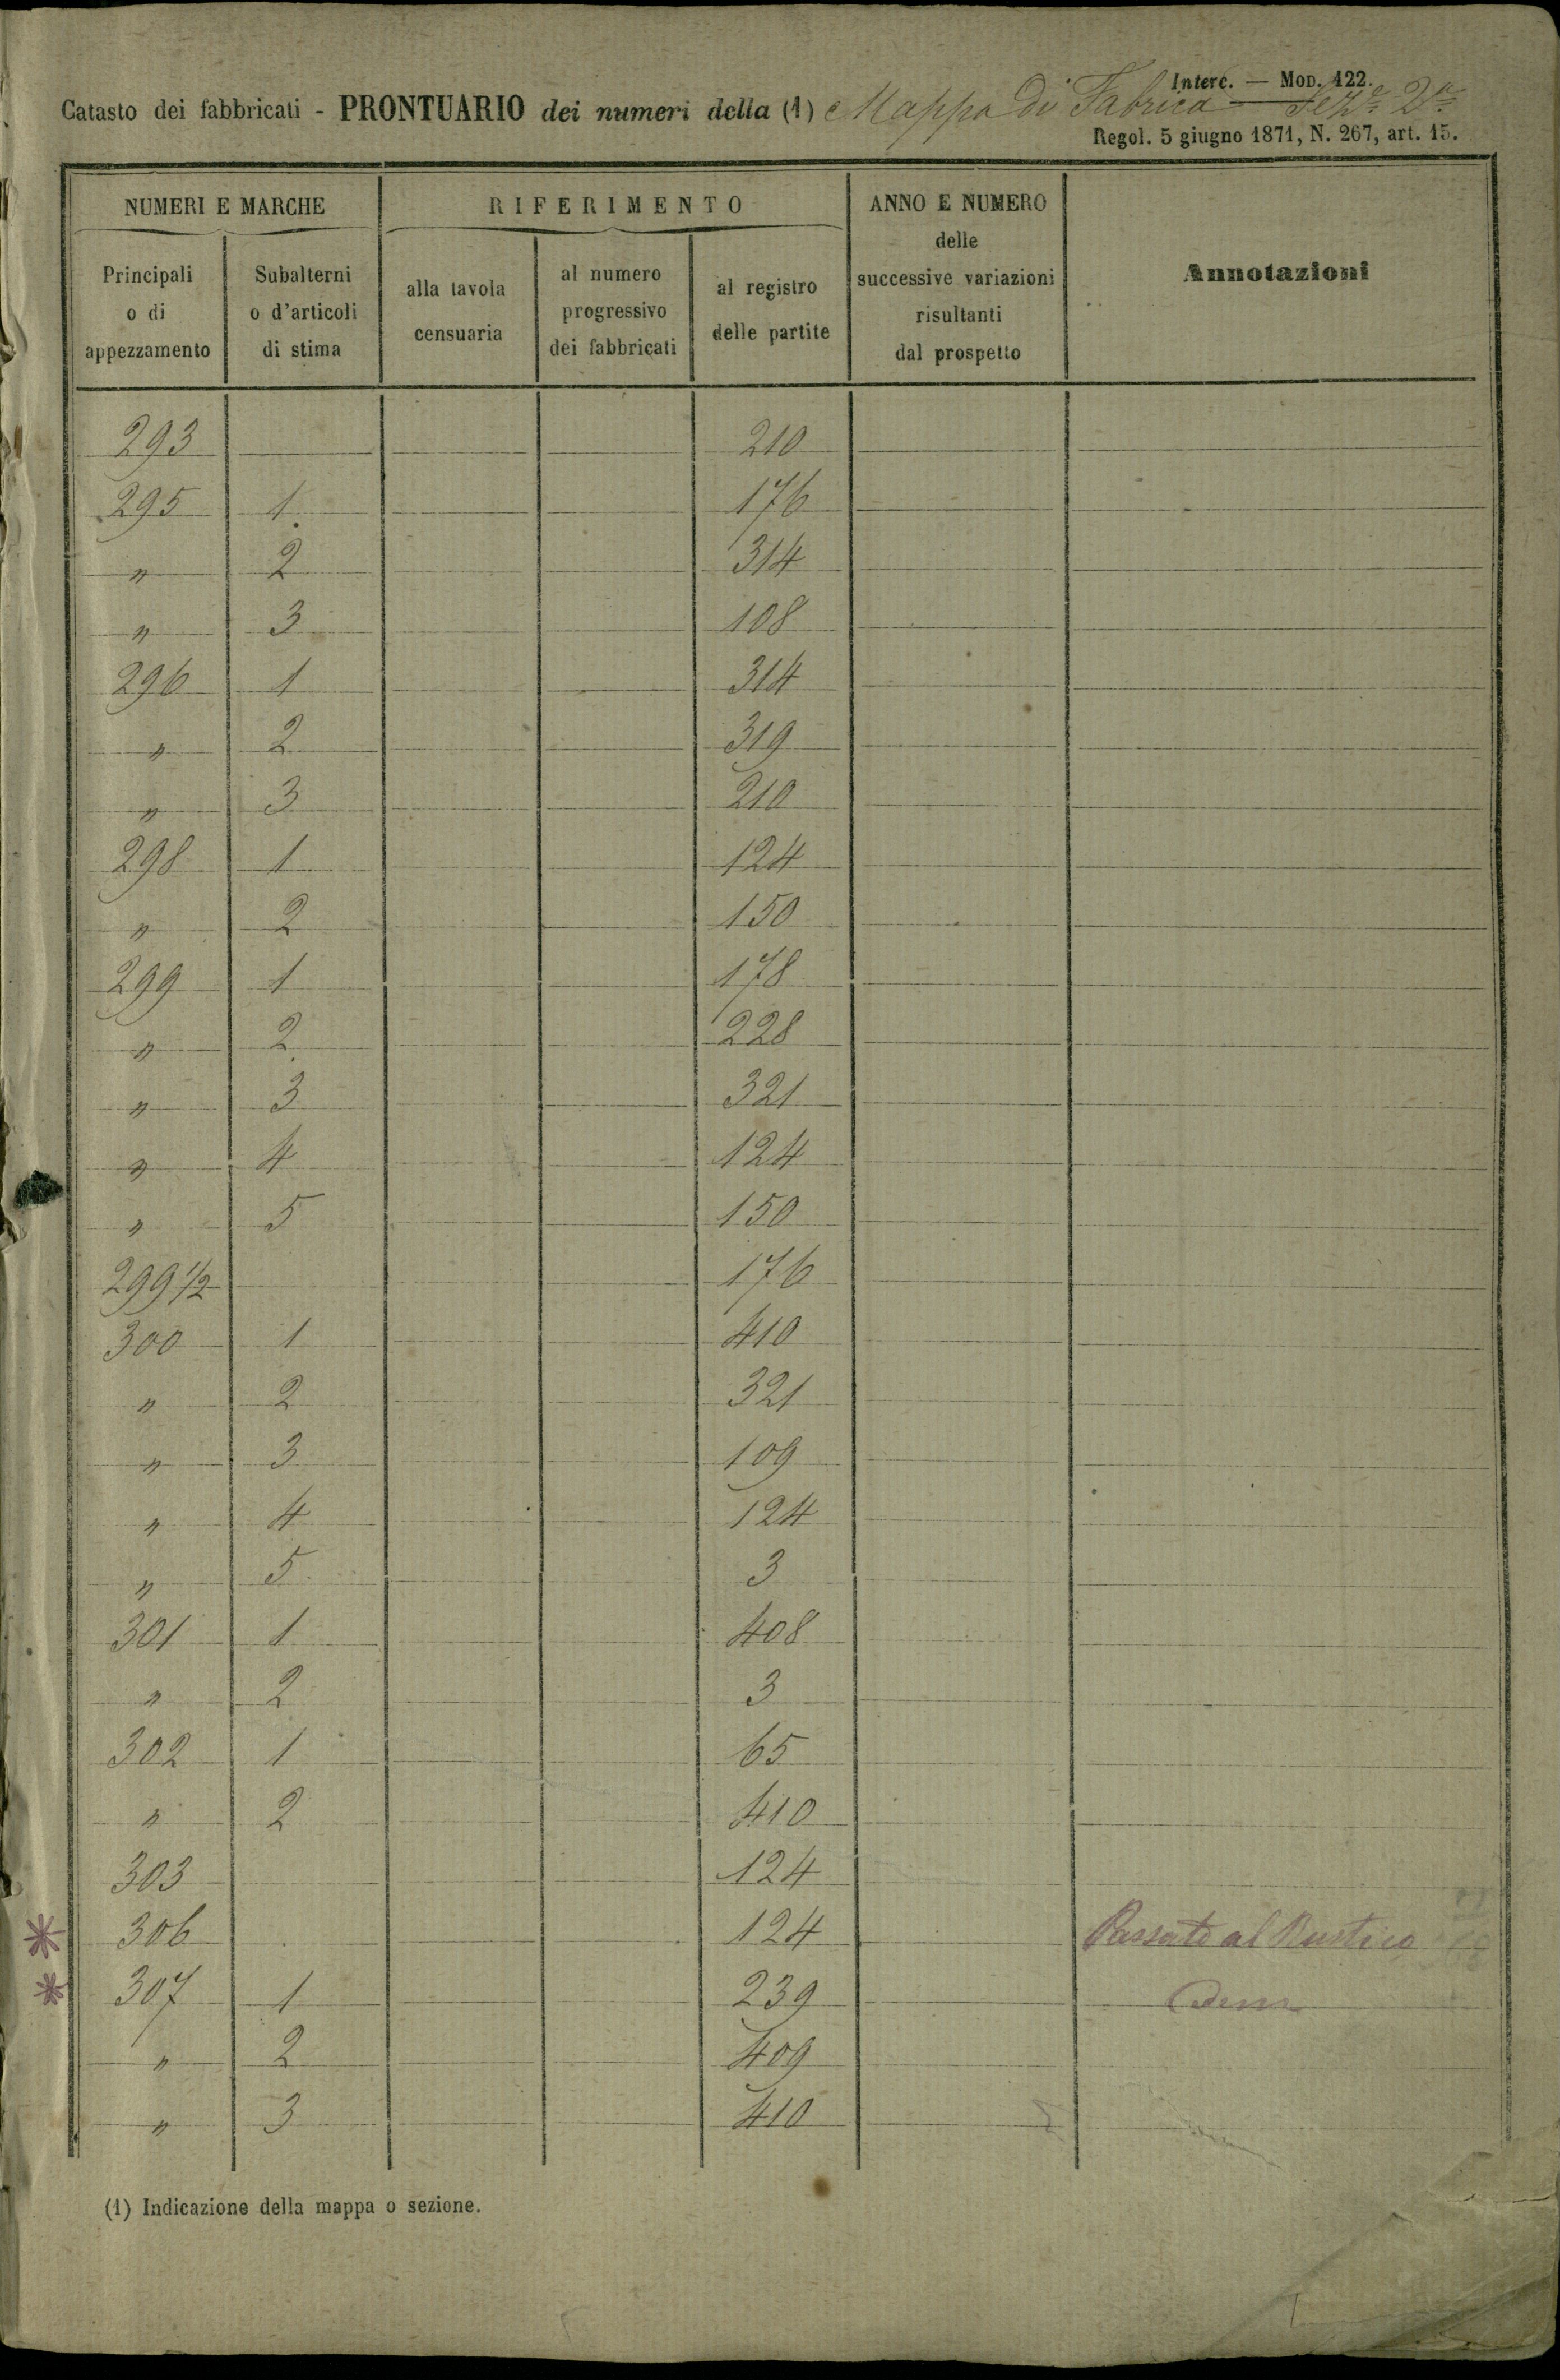 Interc. — Mod. 122.
Catasto dei fabbricati - PRONTUARIO dei numeri della (1) Mappa di Fabrica — Sez.e 2a
Regol. 5 giugno 1871, N. 267, art. 15.
NUMERI E MARCHE RIFERIMENTO ANNO E NUMERO delle successive variazioni risultanti dal prospetto Annotazioni
Principali o di appezzamento Subalterni o d'articoli di stima alla tavola censuaria al numero progressivo dei fabbricati al registro delle partite
293 210
295 1 176
" 2 314
" 3 108
296 1 314
" 2 319
" 3 210
298 1 124
" 2 150
299 1 178
" 2 228
" 3 321
" 4 124
" 5 150
299 1/2 176
300 1 410
" 2 321
" 3 109
" 4 124
" 5 3
301 1 408
" 2 3
302 1 65
" 2 410
303 124
* 306 124 Passato al Rustico
* 307 1 239 Idem
" 2 409
" 3 410
(1) Indicazione della mappa o sezione.